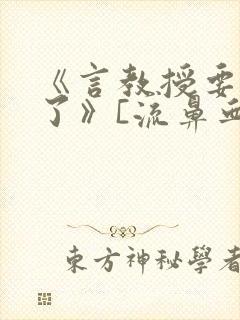 《言教授要
了》[流鼻血
東方神秘學者